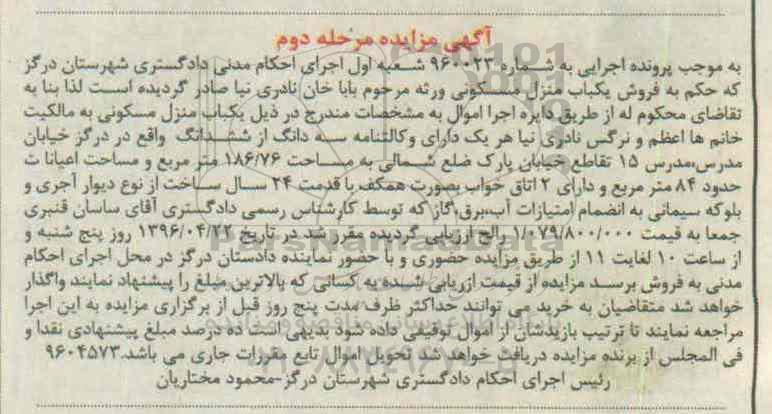 آگهی مزایده مرحله دوم
به موجب پرونده اجرایی به شماره ۹۶۰۰۲۳ شعبه اول اجرای احکام مدنی دادگستری شهرستان درگز
که حکم به فروش یکباب منزل مسکونی ورثه مرحوم بابا خان نادری نیا صادر گردیده است لذا بنا به
تقاضای محکوم له از طریق دایره اجرا اموال به مشخصات مندرج در ذیل یکباب منزل مسکونی به مالکیت
خانم ها اعظم و نرگس نادری نیا هر یک دارای وکالتنامه سه دانگ از ششدانگ واقع در درگز خیابان
مدرس،مدرس ۱۵ تقاطع خیابان پارک ضلع شمالی به مساحت ۱۸۶/۷۶ متر مربع و مساحت اعیانا ت
حدود ۸۴ متر مربع و دارای ۲ اتاق خواب بصورت همکف با قدمت ۲۴ سال ساخت از نوع دیوار آجری و
بلوکه سیمانی به انضمام امتیازات آب،برق،گاز که توسط کارشناس رسمی دادگستری آقای ساسان قنبری
جمعا به قیمت ۱/۰۷۹/۸۰۰/۰۰۰ رالح ارزیابی گردیده مقرر شد در تاریخ ۱۳۹۶/۰۴/۲۲ روز پنج شنبه و
از ساعت ۱۰ لغایت ۱۱ از طریق مزایده حضوری و با حضور نماینده دادستان درگز در محل اجرای احکام
مدنی به فروش برسد مزایده از قیمت ارزیابی شده به کسانی که بالاترین مبلغ را پیشنهاد نمایند واگذار
خواهد شد متقاضیان به خرید می توانند حداکثر ظرف مدت پنج روز قبل از برگزاری مزایده به این اجرا
مراجعه نمایند تا ترتیب بازیدشان از اموال توقیفی داده شود بدیهی است ده درصد مبلغ پیشنهادی نقدا و
فی المجلس از برنده مزایده دریافت خواهد شد تحویل اموال تابع مقررات جاری می باشد.۹۶۰۴۵۷۳
رئیس اجرای احکام دادگستری شهرستان درگز-محمود مختاریان
ParsNamadData